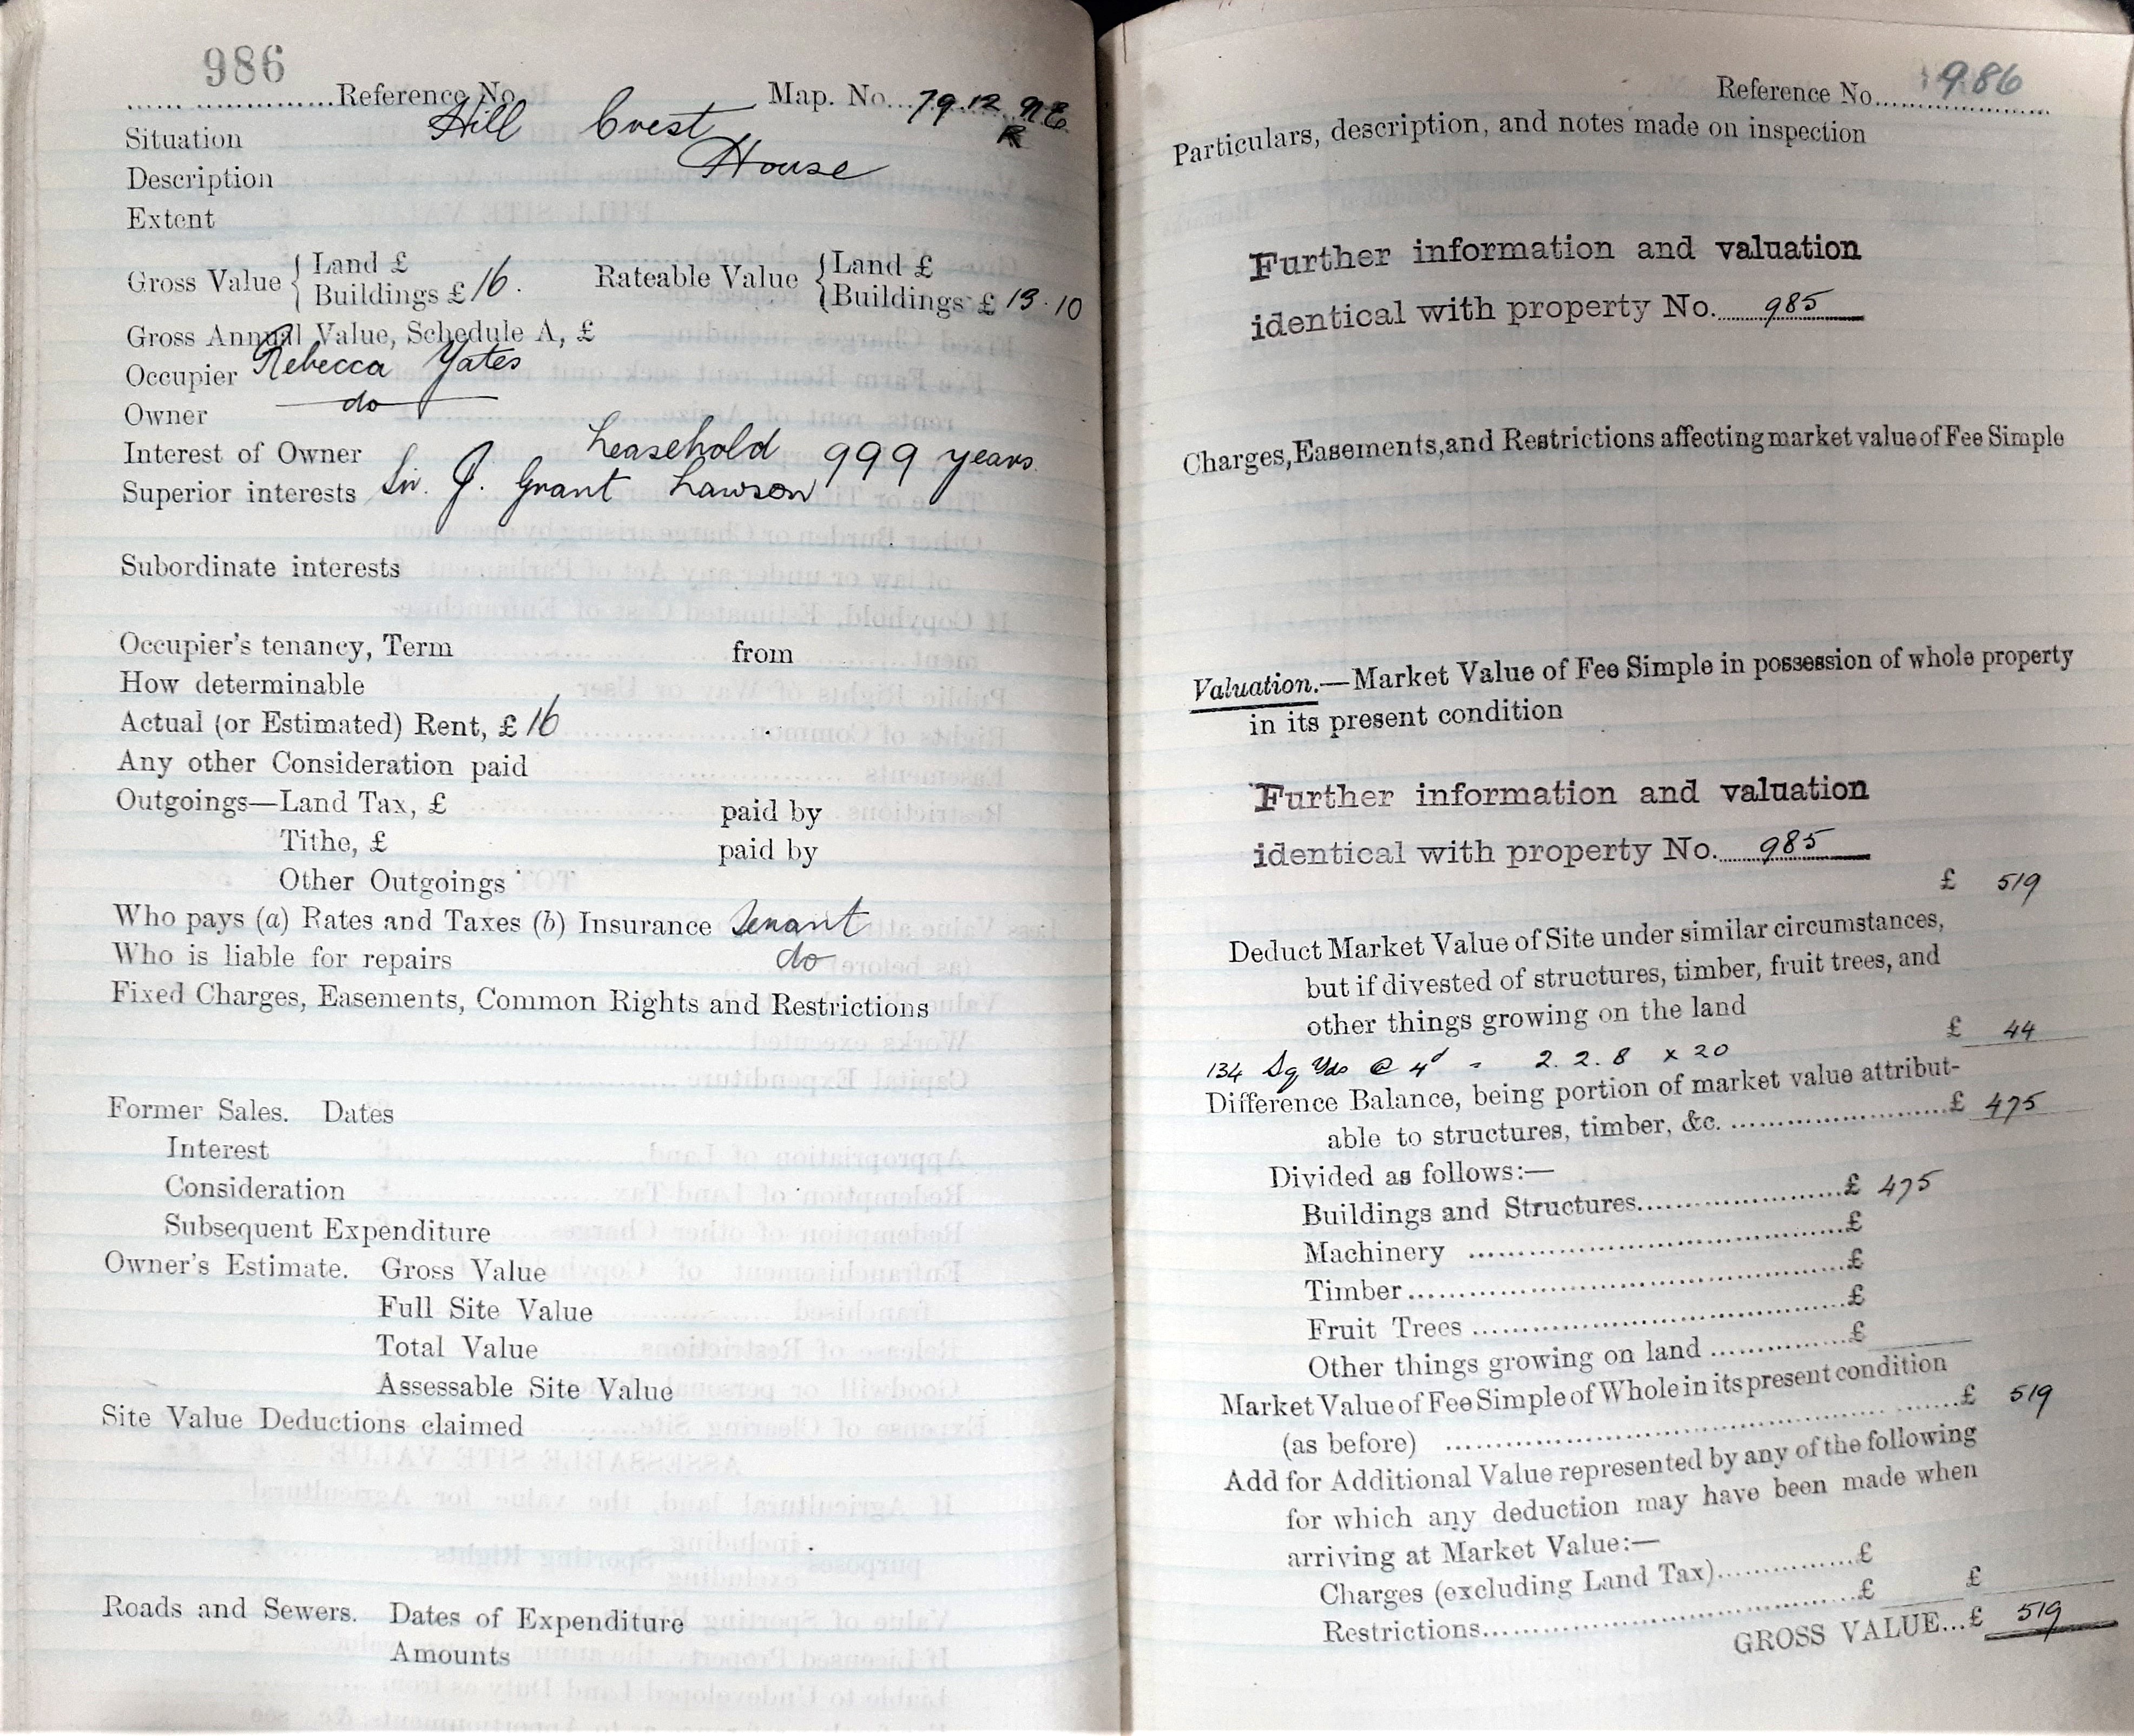 986
Reference No. Map. No. 79.12 N.E.
R
Situation Hill Crest
Description House
Extent
Gross Value { Land £ Rateable Value { Land £
Buildings £ 16. Buildings £ 13.10
Gross Annual Value, Schedule A, £
Occupier Rebecca Yates
Owner do
Interest of Owner Leasehold 999 years.
Superior interests Sir. J. Grant Lawson
Subordinate interests
Occupier's tenancy, Term from
How determinable
Actual (or Estimated) Rent, £ 16
Any other Consideration paid
Outgoings—Land Tax, £ paid by
Tithe, £ paid by
Other Outgoings
Who pays (a) Rates and Taxes (b) Insurance Tenant
Who is liable for repairs do
Fixed Charges, Easements, Common Rights and Restrictions
Former Sales. Dates
Interest
Consideration
Subsequent Expenditure
Owner's Estimate. Gross Value
Full Site Value
Total Value
Assessable Site Value
Site Value Deductions claimed
Roads and Sewers. Dates of Expenditure
Amounts
Reference No. 986
Particulars, description, and notes made on inspection
Further information and valuation
identical with property No. 985
Charges, Easements, and Restrictions affecting market value of Fee Simple
Valuation.—Market Value of Fee Simple in possession of whole property
in its present condition
Further information and valuation
identical with property No. 985
£ 519
Deduct Market Value of Site under similar circumstances,
but if divested of structures, timber, fruit trees, and
other things growing on the land
£ 44
134 Sq Yds @ 4d = 2.2.8 x 20
Difference Balance, being portion of market value attribut-
able to structures, timber, &c. £ 475
Divided as follows:—
Buildings and Structures £ 475
Machinery £
Timber £
Fruit Trees £
Other things growing on land £
Market Value of Fee Simple of Whole in its present condition
(as before) £ 519
Add for Additional Value represented by any of the following
for which any deduction may have been made when
arriving at Market Value:—
Charges (excluding Land Tax) £
Restrictions £ £
GROSS VALUE...£ 519